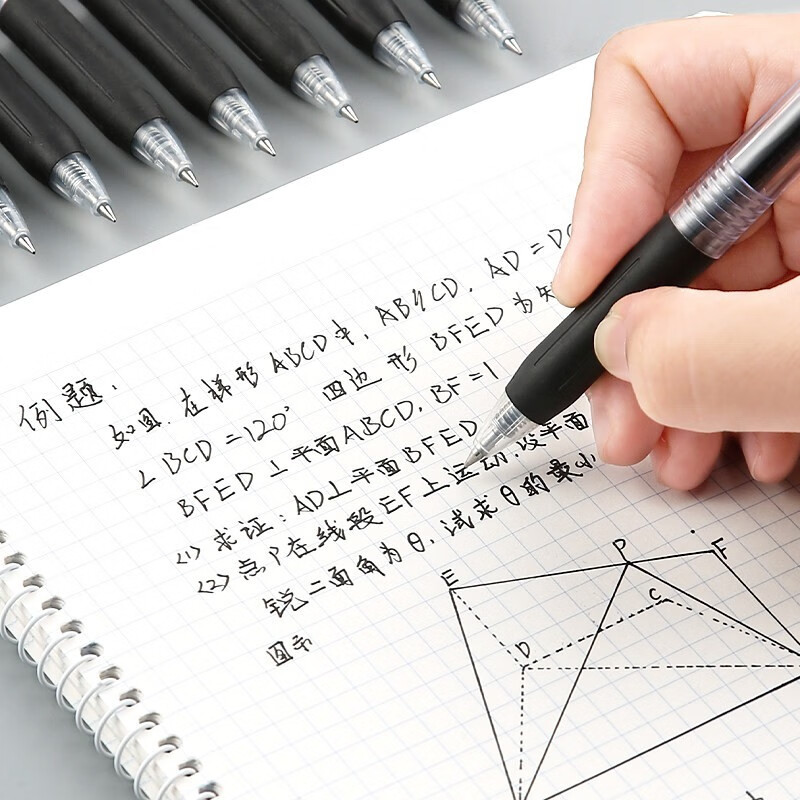 例题.
如图.在梯形ABCD中, AB∥CD. AD=DC
∠BCD=120° 四边形 BFED为矩
BFED⊥平面ABCD. BF=1
(1) 求证: AD⊥平面BFED
(2) 点P在线段EF上运动.设平面
锐二面角为θ. 试求θ的最小
图示
E
P
F
C
D